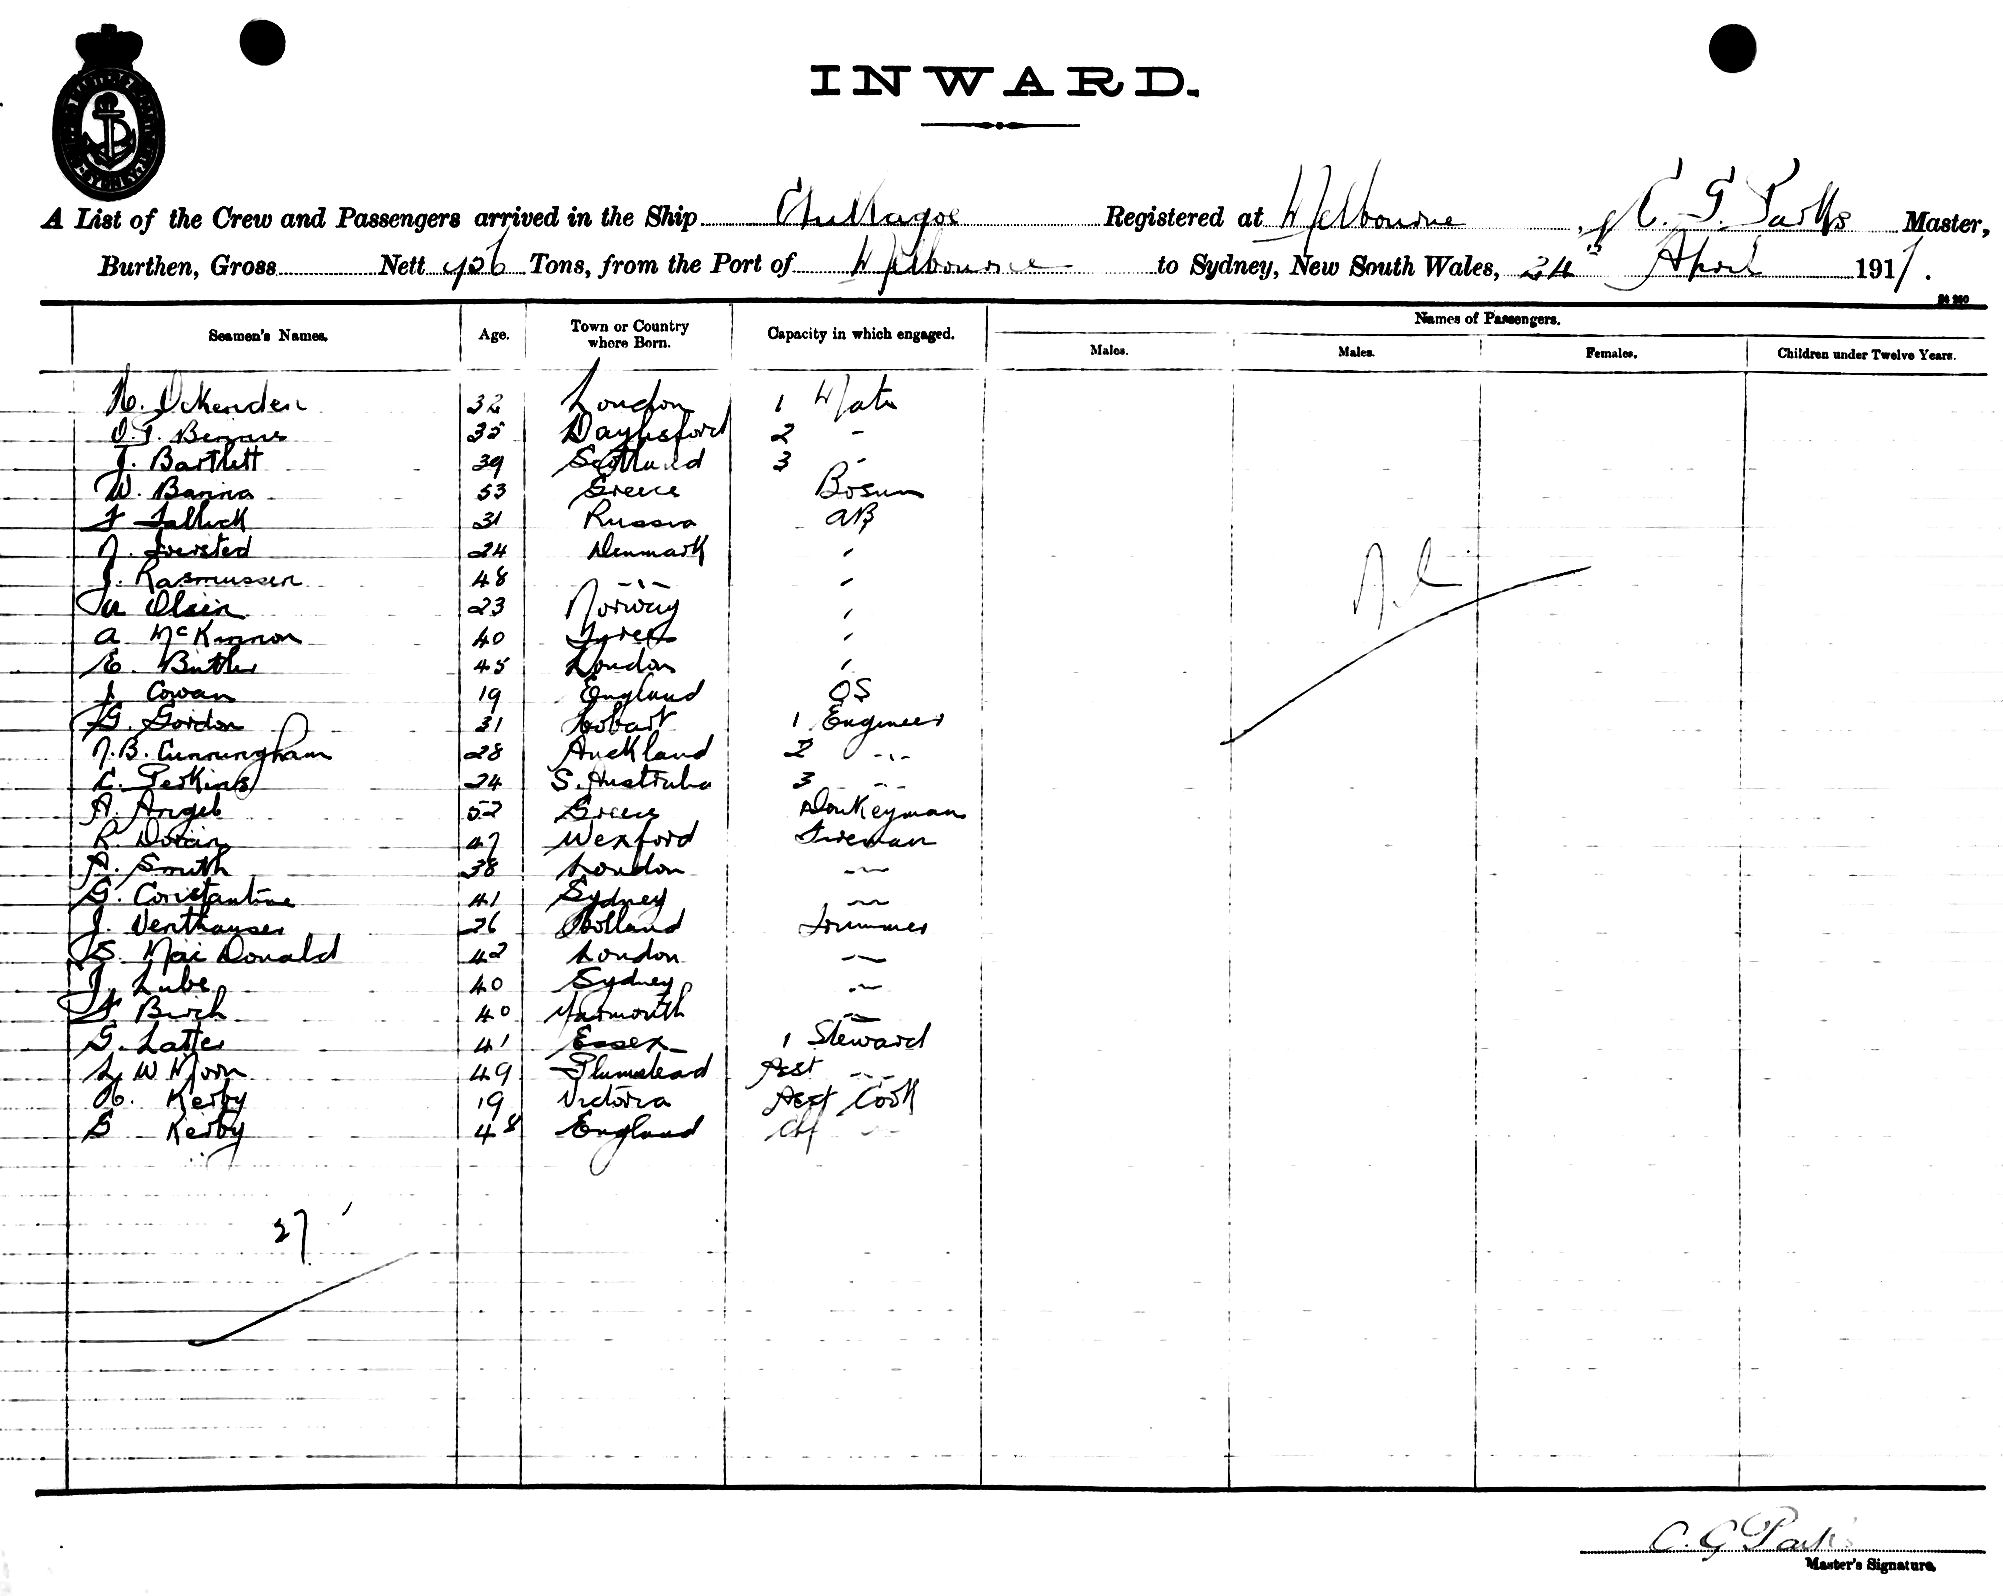 INWARD.
A List of the Crew and Passengers arrived in the Ship Chillagoe Registered at Melbourne, of C. G. Parks Master,
Burthen, Gross Nett Tons, from the Port of Melbourne to Sydney, New South Wales, 24th April 1911.
Seamen's Names. Age. Town or Country where Born. Capacity in which engaged. Names of Passengers.
Males. Males. Females. Children under Twelve Years.
H. Ockenden 32 London 1 Mate
35 Daylesford 2 -
J. Bartlett 39 Scotland 3 -
W. Banna 53 Greece Bosun
31 Russia AB
24 Denmark "
J. Rasmussen 48 -"- "
Olsen 23 Norway "
A McKinnon 40 "
E. Butler 45 London "
J Cowan 19 England OS
G. Gordon 31 Hobart 1 Engineer
N.B. Cunningham 28 Auckland 2 -"-
C. Perkins 24 S. Australia 3 -"-
A. Angel 52 Greece Donkeyman
R. Doran 47 Wexford Fireman
A. Smith 38 London -"-
G. Constantine 41 Sydney -"-
J. Venthauser 26 Holland Trimmer
S. MacDonald 42 London -"-
J. Lube 40 Sydney -"-
F Birch 40 Yarmouth -"-
G. Latter 41 Essex 1 Steward
L W Moon 49 Plumstead Asst -"-
H. Kerby 19 Victoria Asst Cook
S Kerby 48 England Chf -"-
Nil
27
C. G Parks
Master's Signature.